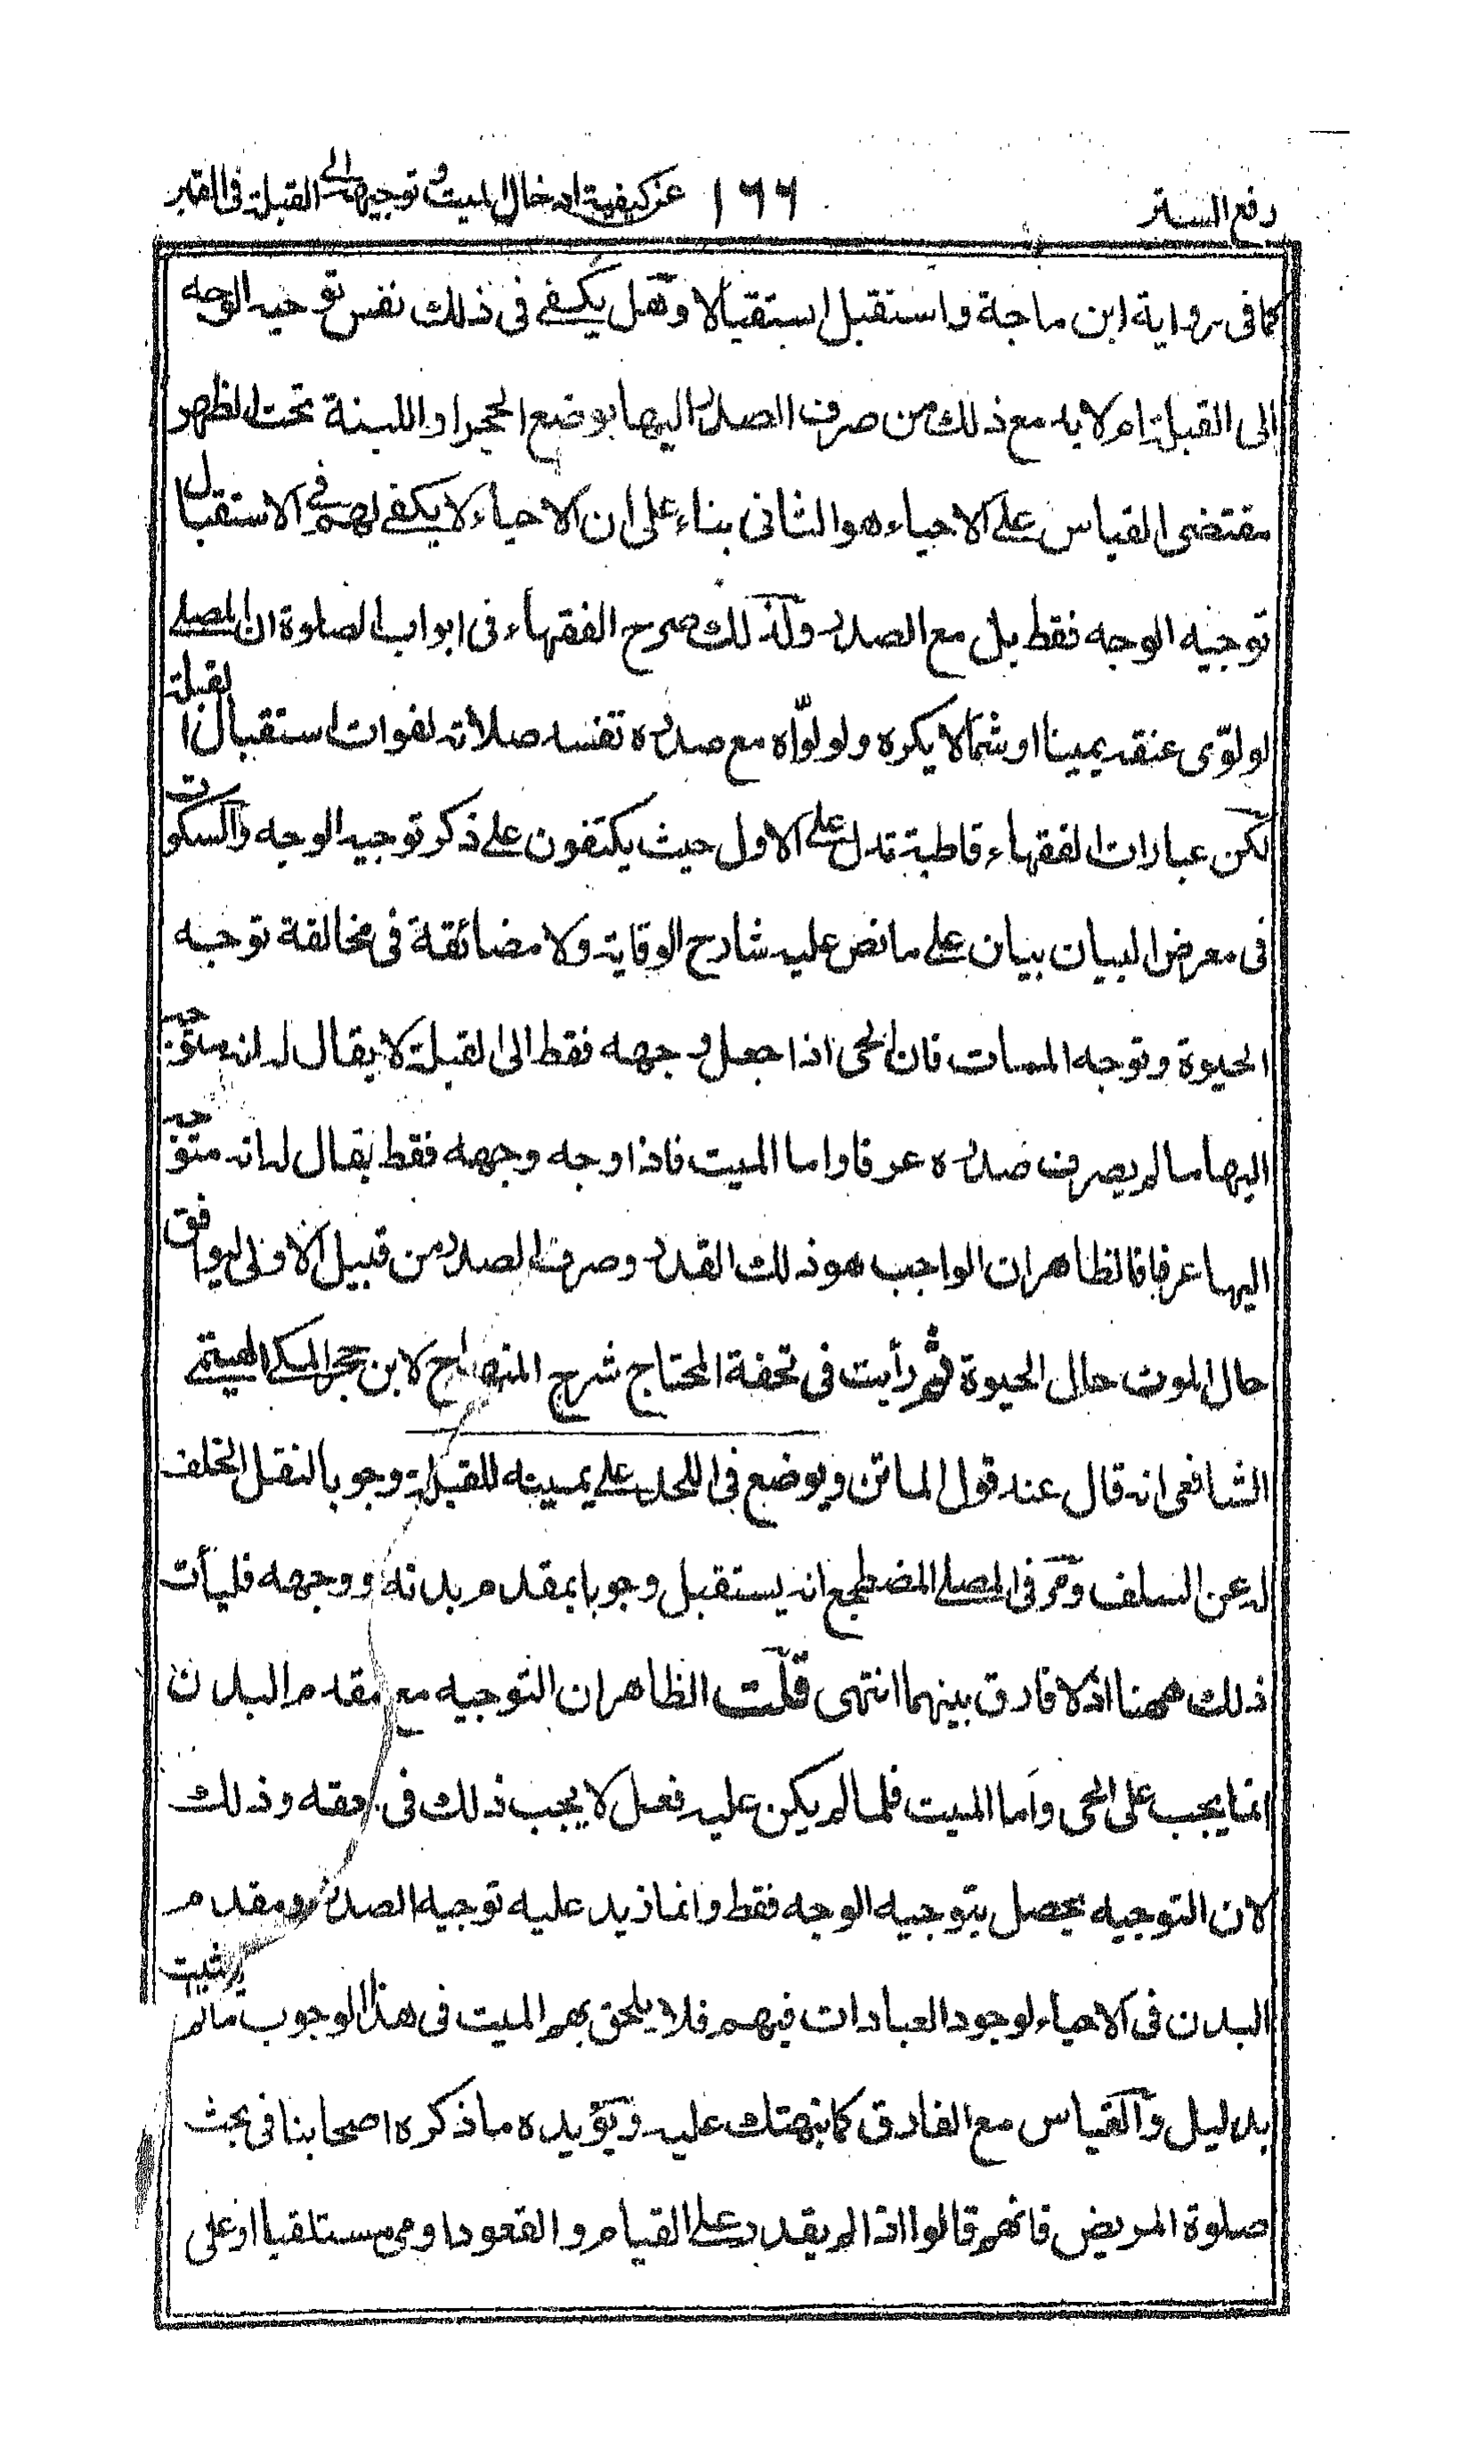 رفع الستر ١٦٦ عن كيفية ادخال الميت و توجيهه الى القبلة فى القبر
كما فى رواية ابن ماجة واستقبل استقبالا وهل يكفے فى ذلك نفس توجيه الوجه
الى القبلة ام لا بد مع ذلك من صرف الصدر اليها بوضع الحجر او اللبنة تحت الظهر
مقتضى القياس علے الاحياء هو الثانى بناء على ان الاحياء لا يكفے لهم فے الاستقبال
توجيه الوجه فقط بل مع الصدر ولذلك صرح الفقهاء فى ابواب الصلوة ان المصلے
لو لوّى عنقه يمينا او شمالا يكره ولو لوّاه مع صدره تفسد صلاته لفوات استقبال القبلة
لكن عبارات الفقهاء قاطبة تدل علے الاول حيث يكتفون علے ذكر توجيه الوجه والسكوت
فى معرض البيان بيان علے ما نص عليه شارح الوقاية ولا مضائقة فى مخالفة توجيه
الحيوة وتوجه الممات فان الحى اذا جعل وجهه فقط الى القبلة لا يقال له انه متوجه
اليها ما لم يصرف صدره عرفا واما الميت فاذا وجه وجهه فقط يقال له انه متوجه
اليها عرفا فالظاهر ان الواجب هو ذلك القدر وصرف الصدر من قبيل الاولى ليوافق
حال الموت حال الحيوة ثم رأيت فى تحفة المحتاج شرح المنهاج لابن حجر المكے الهيتمے
الشافعى انه قال عند قول الماتن ويوضع فى اللحد علے يمينه للقبلة وجوبا لنقل الخلف
له عن السلف ومر فى المصلے المضطجع انه يستقبل وجوبا بمقدم بدنه ووجهه فليأت
ذلك ههنا اذ لا فارق بينهما انتهى قلت الظاهر ان التوجيه مع مقدم البدن
انما يجب على الحى واما الميت فلما لم يكن عليه فعل لا يجب ذلك فى حقه وذلك
لان التوجيه يحصل بتوجيه الوجه فقط وانما زيد عليه توجيه الصدر ومقدم
البدن فى الاحياء لوجود العبادات فيهم فلا يلحق بهم الميت فى هذا الوجوب ما لم يثبت
بدليل والقياس مع الفارق كما نبهتك عليه ويؤيده ما ذكره اصحابنا فى بحث
صلوة المريض فانهم قالوا اذا لم يقدر علے القيام و القعود اومى مستلقيا او على